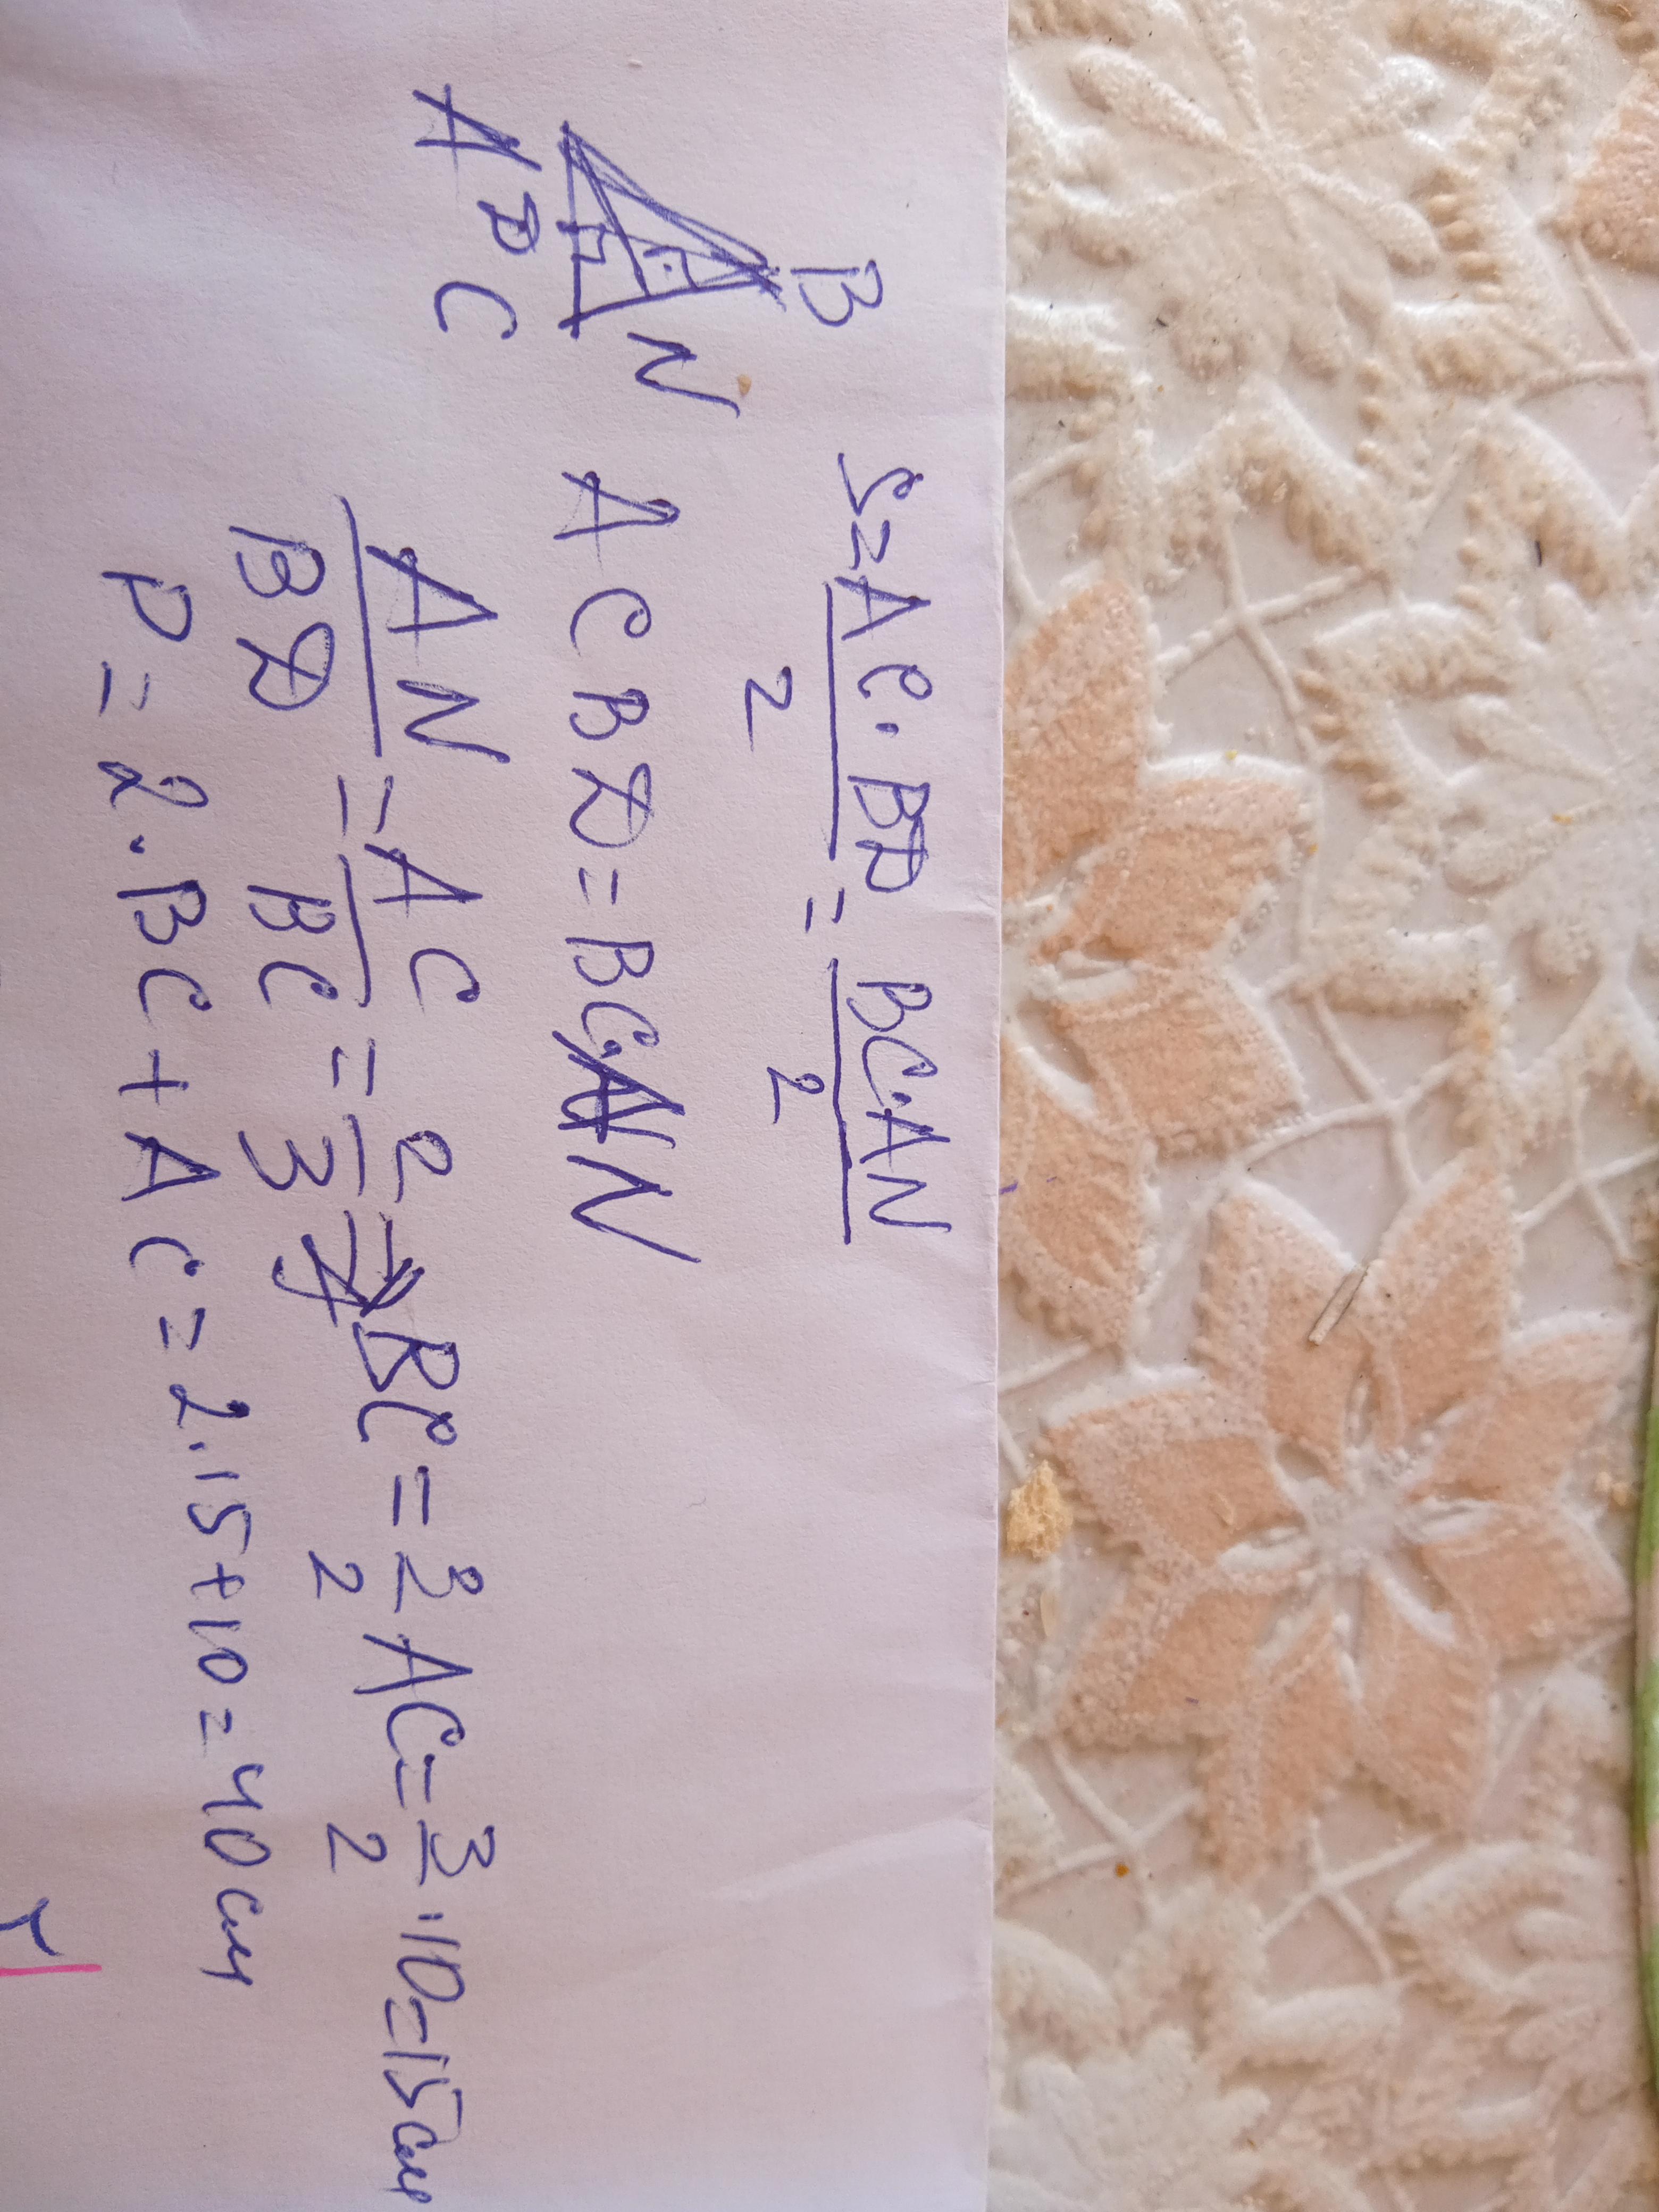 B
N
A D C
S = AC · BD / 2 = BC · AN / 2
AC BD = BC · AN
AN / BD = AC / BC = 2 / 3 ⇒ BC = 3 / 2 AC = 3 / 2 · 10 = 15 см
P = 2 · BC + AC = 2 · 15 + 10 = 40 см